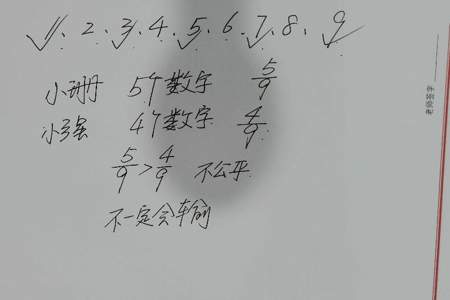 1、2、3、4、5、6、7、8、9
小珊 5个数字 5/9
小强 4个数字 4/9
5/9>4/9 不公平
不一定会输
老师签字